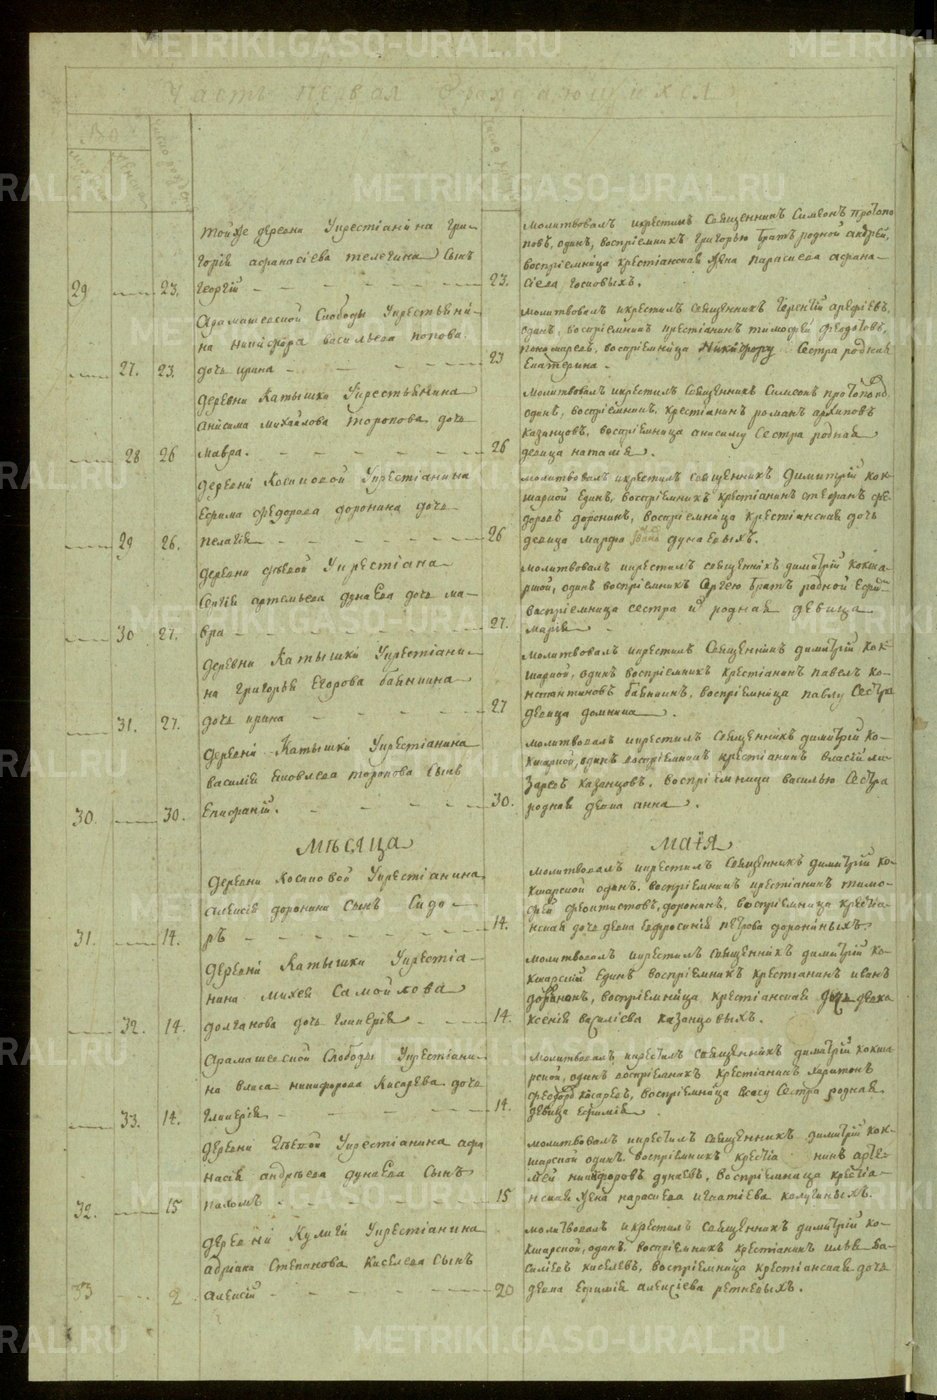 METRIKI.GASO-URAL.RU
Часть первая О раждающихся
тойже деревни Укрестіанина Гри-
горія афанасіева телегина Сынъ
29 23. Георгій
молитвовалъ икрестилъ Священникъ Симеонъ протопо
повъ, одинъ, воспріемникъ Григорью братъ родной андрей,
воспріемница крестіанская жена параскева афана-
23. сіева, Госповыхъ.
Арамашевской Слободы Укрестьяни-
на никифора васильева попова
27. 23. дочь ирина
молитвовалъ икрестилъ священникъ Терентій арефіевъ,
одинъ, воспріемникъ крестіанинъ тимофей Феодотовъ,
пономаревъ, воспріемница Никифору Сестра родная
23 Екатерина.
деревни Катышки Укрестьянина
анисима михайлова торопова дочь
28 26 мавра.
молитвовалъ икрестилъ Священникъ Симеонъ протопопов
одинъ, воспріемникъ, крестіанинъ романъ архиповъ
казанцовъ, воспріемница анисиму Сестра родная
26 девица наталья.
деревни Косиковой Укрестіанина
Ефима Федорова доронина дочь
29 26. пелагія
молитвовалъ икрестилъ священникъ Димитрій кок-
шарной Единъ, воспріемникъ крестіанинъ стефанъ фе-
доровъ доронинъ, воспріемница крестіанская дочь
26 девица марфа дунаевыхъ.
Укрестіана
Сергія артемьева дунаева дочь ма-
30 27. вра
молитвовалъ икрестилъ священникъ димитрій кокша-
рной, одинъ воспріемникъ Сергею братъ родной
воспріемница сестра и родная девица
27. марія
деревни Катышки Укрестіани-
на Григорья Егорова бабкина
31. 27. дочь ирина
молитвовалъ икрестилъ Священникъ димитрій кок-
шарной, одинъ воспріемникъ крестіанинъ павелъ ко-
нстантиновъ бабкинъ, воспріемница павлу Сестра
27 девица домника.
деревни Катышки Укрестіанина
василія Яковлева торопова Сынъ
30. 30. Епифаній.
молитвовалъ икрестилъ Священникъ димитрій ко-
кшарной, одинъ воспріемникъ крестіанинъ власій ла-
заревъ казанцовъ. воспріемница василью Сестра
30. родная девка анна.
Мѣсяца Маія
деревни Косиковой Укрестіанина
алексія доронина Сынъ Сидо-
31. 14. ръ
молитвовалъ икрестилъ Священникъ димитрій ко-
кшарской одинъ. воспріемникъ крестіанинъ тимо-
фей феоктистовъ, доронинъ, воспріемница крестіа-
14. нская дочь девка Евфросинія петрова доронныхъ.
деревни Катышки Укрестіа-
нина михея Самойлова
32. 14. долганова дочь гликерія
молитвовалъ икрестилъ священникъ димитрій ко-
кшарскій Единъ воспріемникъ крестіанинъ иванъ
доронинъ, воспріемница крестіанская дочь девка
14. ксенія василіева казанцовыхъ.
арамашевской Слободы Укрестіани-
на власа никифорова Кисарева дочь
33. 14. Гликерія
молитвовалъ икрестилъ священникъ димитрій кокша-
рской, одинъ воспріемникъ крестіанинъ харитонъ
воспріемница власу Сестра родная
14. девица Ефимія.
деревни Укрестіанина афа
насія андреева дунаева Сынъ
32. 15 пахомъ
молитвовалъ икрестилъ Священникъ димитрій кок-
шарской одинъ. воспріемникъ крестіа нинъ арте-
мей никифоровъ дунаевъ. воспріемница крестіа-
15 нская жена параскева игнатіева калугиныхъ.
деревни Кулиги Укрестіанина
адріана Степанова Киселева Сынъ
33 2 алексій
молитвовалъ икрестилъ священникъ димитрій ко-
кшарской, одинъ. воспріемникъ крестіанинъ илья ва-
силіевъ киселевъ, воспріемница крестіанская дочь
20 девка Ефимія алексіева ретневыхъ.